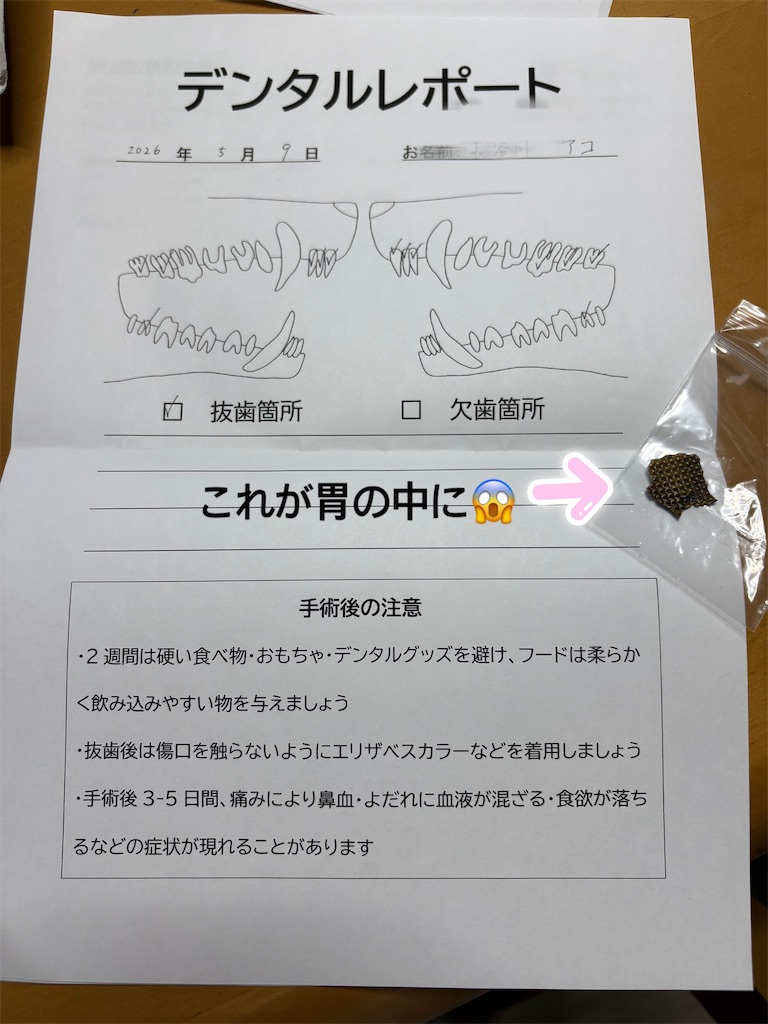 デンタルレポート
2026 年 5 月 9 日 お名前 長谷川 アコ
☑ 抜歯箇所 ☐ 欠歯箇所
これが胃の中に😱
手術後の注意
・2週間は硬い食べ物・おもちゃ・デンタルグッズを避け、フードは柔らか
く飲み込みやすい物を与えましょう
・抜歯後は傷口を触らないようにエリザベスカラーなどを着用しましょう
・手術後3-5日間、痛みにより鼻血・よだれに血液が混ざる・食欲が落ち
るなどの症状が現れることがあります